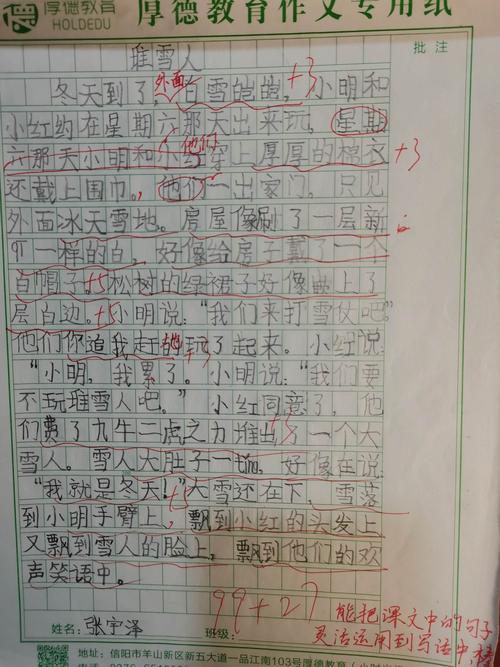 厚德教育 HOLDEDU 厚德教育作文专用纸
批注
堆雪人
冬天到了,外面白雪皑皑,+3小明和
小红约在星期六那天出来玩,星期
六那天小明和小红他们穿上厚厚的棉衣+3
还戴上围巾。他们一出家门。只见
外面冰天雪地。房屋像刷了一层新
一样的白,好像给房子戴了一个
白帽子。+5松树的绿裙子好像上了
层白边。+5小明说:“我们来打雪仗吧。”
他们你追我赶的玩了起来。小红说:
“小明,我累了。”小明说:“我们要
不玩堆雪人吧。”小红同意了,他
们费了九牛二虎之力堆出了一个大
雪人。雪人大肚子一,好像在说:
“我就是冬天!”大雪还在下,雪落
到小明手臂上,飘到小红的头发上
又飘到雪人的脸上,飘到他们的欢
声笑语中。
99+27
能把课文中的句子
灵活运用到写话中,棒
姓名:张宇泽 班级:
地址:信阳市羊山新区新五大道一品江南103号厚德教育